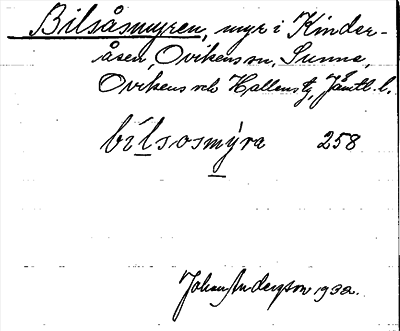 Bilsåsmyren, myr i Kinder-
åsen, Ovikens sn, Sunne,
Ovikens och Hallens tg, Jämtl. l.
bílsosmýra 258
Johan Anderson 1932.